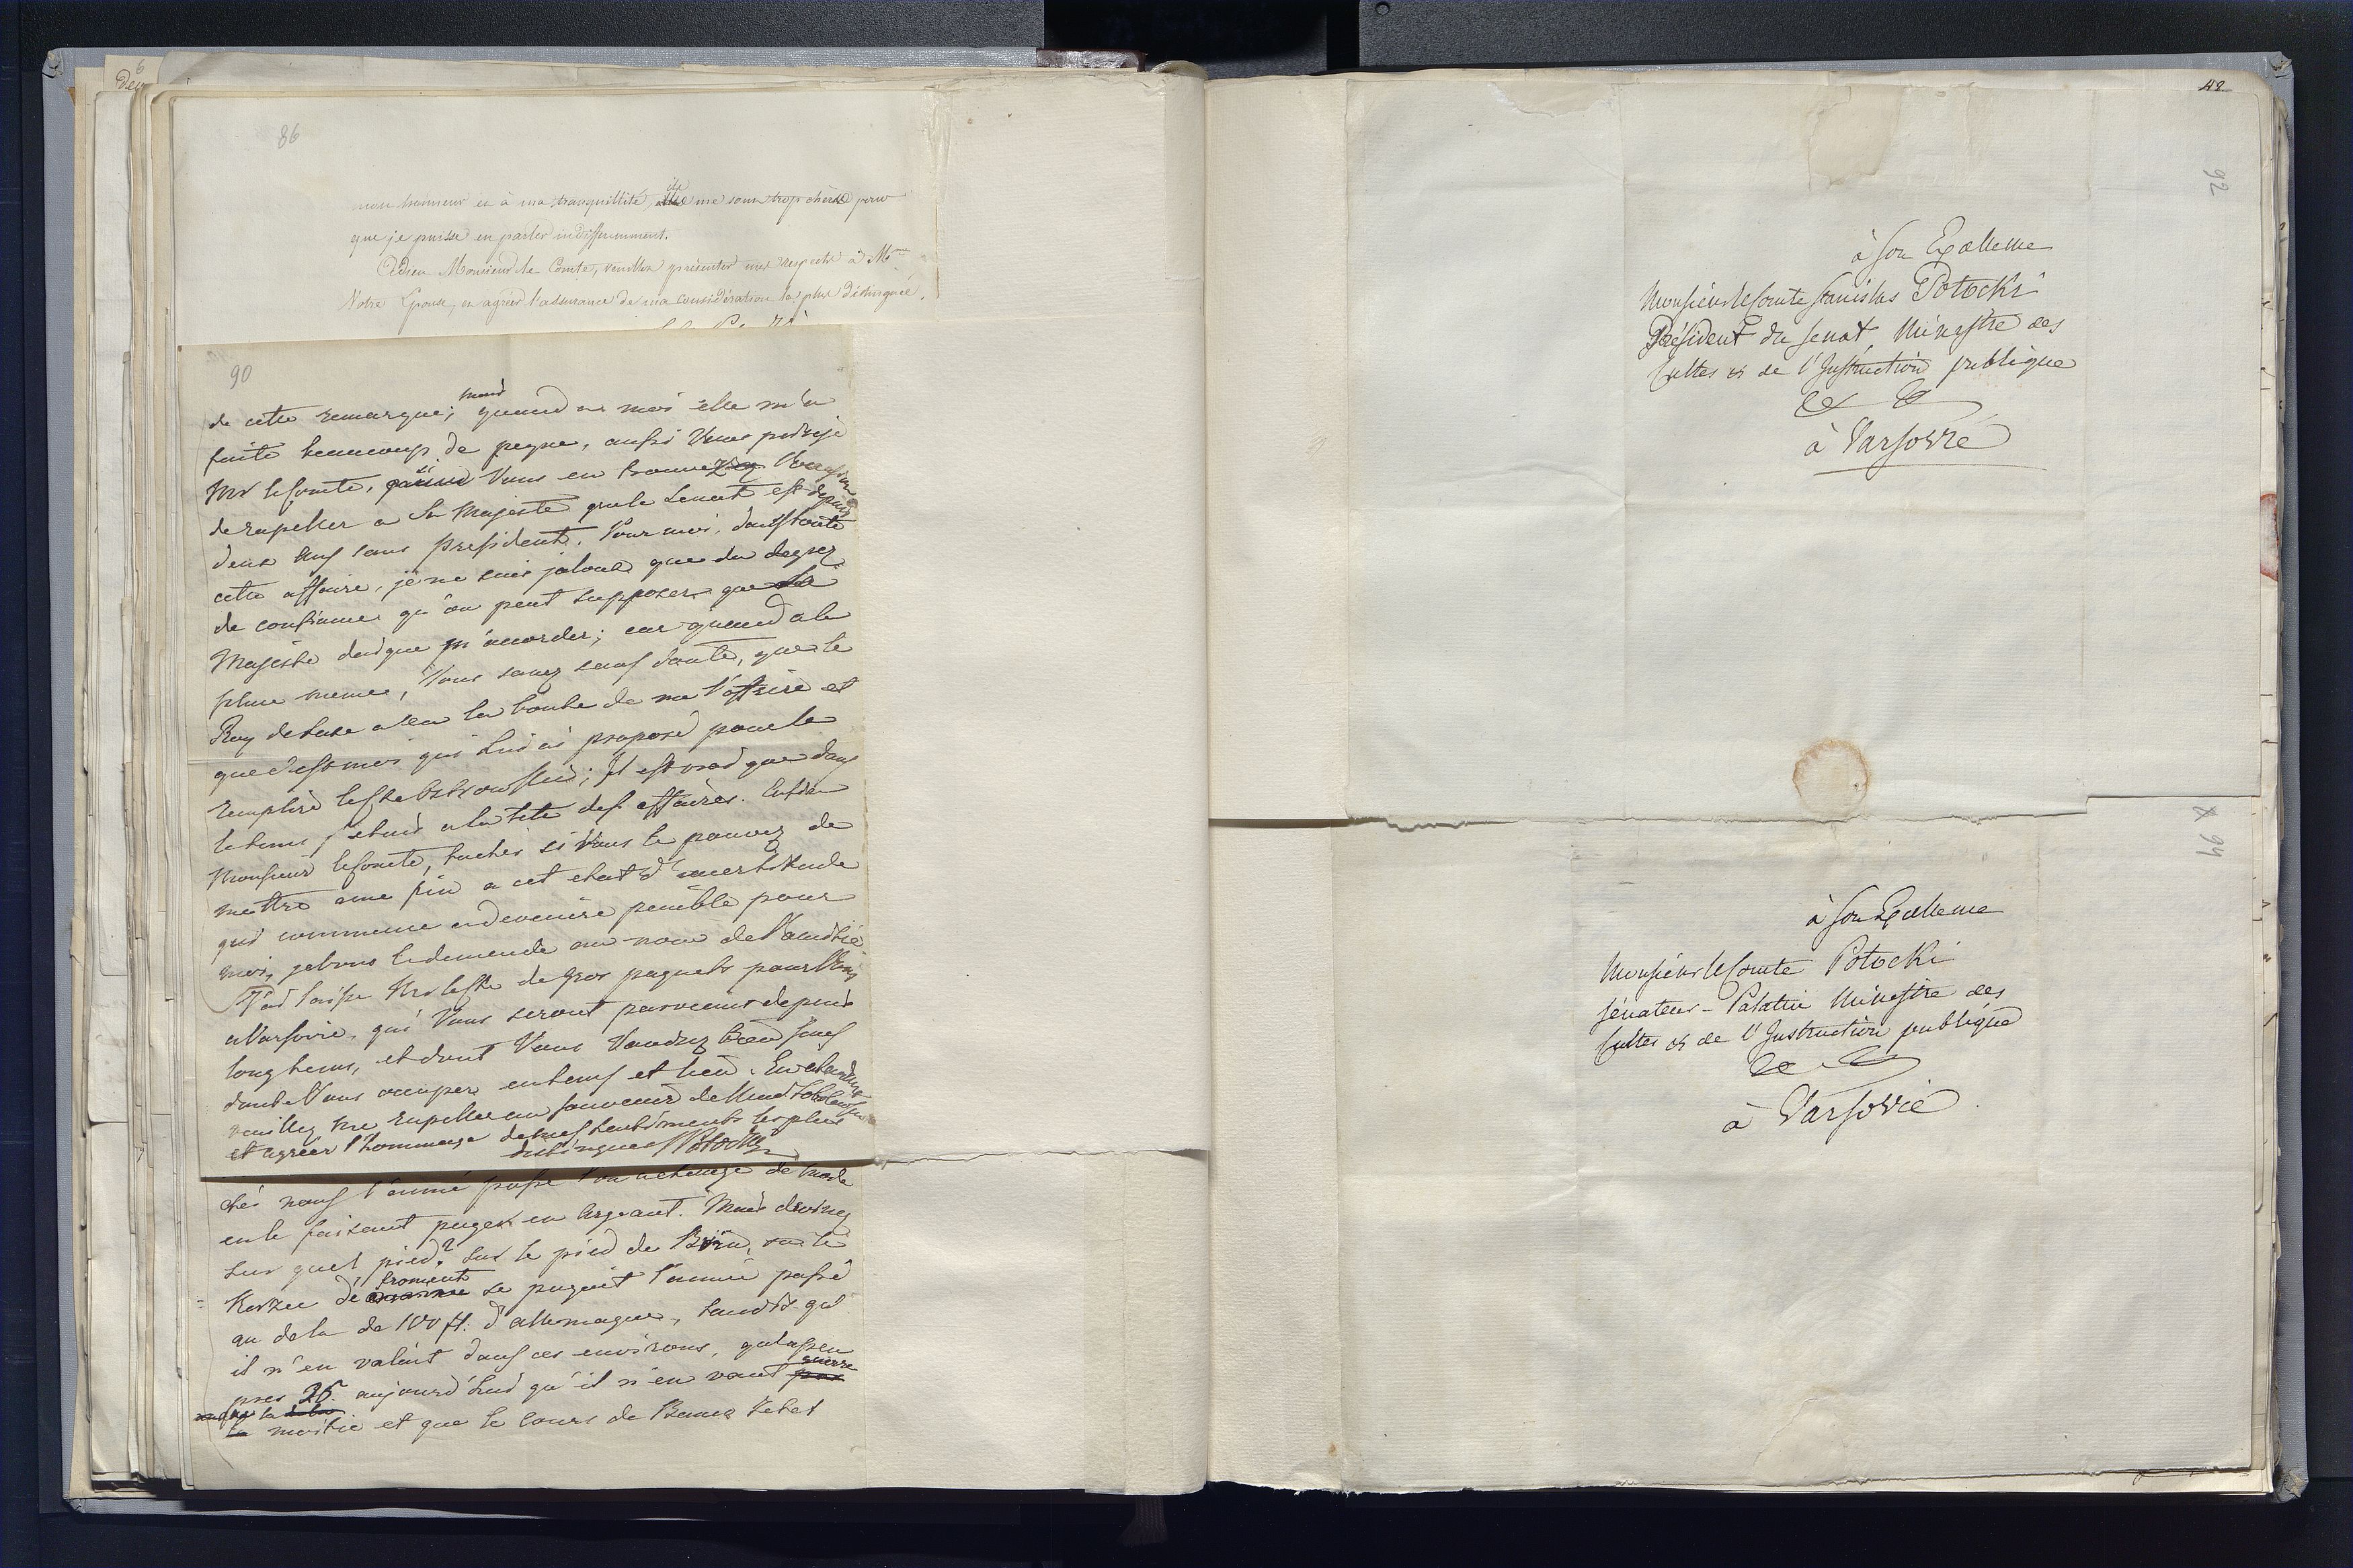 86
mon honneur et à ma tranquillité, ils me sont trop chèrs pour
que je puisse en parler indifferemment.
Adieu Monsieur le Comte, veuillez présenter mes respects à Mme
Votre Epouse, et agréer l'assurance de ma considération la plus distinguée.
90
de cette remarque; mais quand a moi elle m'a
faite beaucoup de peyne, aussi Vous priroije
Mr le Comte, si Vous en trouvez l'occasion
de rapeller a Sa Majesté que le Senat est depuis
deux ans sans president. Pour moi, dans toute
cette affaire, je ne suis jaloux que du degrez
de confiance qu'on peut supposer que Sa
Majesté daigne m'accorder; car quand a la
place meme, Vous savez sans doute, que le
Roy de Saxe a eu la bonté de me l'offrire et
que c'est moi qui lui ai proposé pour la
remplire le Cte Ostrowski; Il est vrai que dans
le tems j'etais a la tete des affaires. Enfin
Monsieur le Comte, tachés si Vous le pouvez de
mettre une fin a cet etat d'incertitude
qui commence a devenire penible pour
moi, je Vous le demende au nom de l'amitié
J'ai laissé Mr le Cte de gros paquets pour Vous
a Varsovie, qui Vous seront parvenus depuis
longtems, et dont Vous Vaudrez bien sans
doute Vous occuper en tems et lieu. En attendant
veuillez me rapeller au souvenir de Mme Sobolewska
et agréer l'hommage de mes sentiments les plus
distingués SPotocki
chés nous l'année passé l'on a changé de mode
en le faisant payer en Argeant. Mais devinez
sur quel pied? sur le pied de Brün, ou le
Korzec de froment se payait l'année passé
au dela de 100 fl. d'allemagne, tandis qu'
il n'en valait dans ces environs, qu'a peu
pres 36 aujourd'hui qu'il n'en vaut guerre
que la
moitié et que le cours de Banco Zetel
42
92
à Son Excellence
Monsieur le Comte Stanislas Potocki
Président du Senat, Ministre des
Cultes et de l'Instruction publique
& &
à Varsovie
94
à Son Excellence
Monsieur le Comte Potocki
Sénateur-Palatin Ministre des
Cultes et de l'Instruction publique
& &
à Varsovie